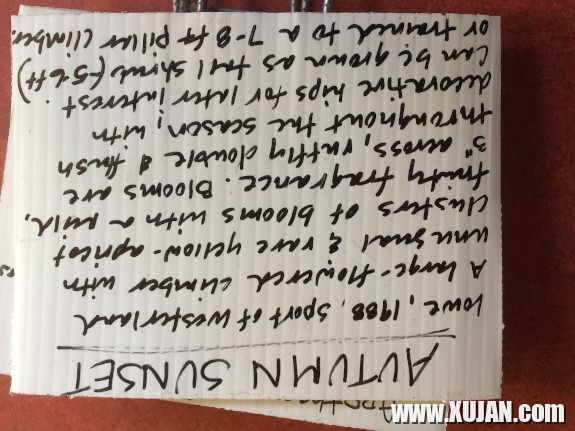 AUTUMN SUNSET
Lowe, 1988. Sport of Westerland
A large-flowered climber with
unusual & rare yellow-apricot
clusters of blooms with a mild,
fruity fragrance. Blooms are
3" across, ruffly double & flush
throughout the season, with
decorative hips for later interest
Can be grown as tall shrub (~5-6 ft)
or trained to a 7-8 ft pillar climber.
www.XUJAN.com